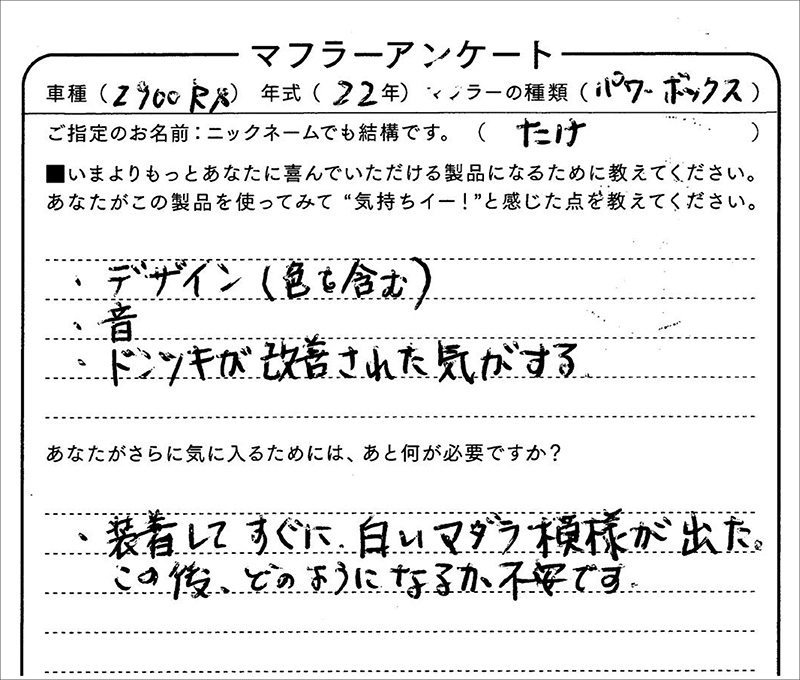 マフラーアンケート
車種（Z900RS） 年式（22年） マフラーの種類（パワーボックス）
ご指定のお名前：ニックネームでも結構です。（ たけ ）
■いまよりもっとあなたに喜んでいただける製品になるために教えてください。
あなたがこの製品を使ってみて“気持ちイー！”と感じた点を教えてください。
・デザイン（色を含む）
・音
・ドンツキが改善された気がする
あなたがさらに気に入るためには、あと何が必要ですか？
・装着してすぐに、白いマダラ模様が出た。
この後、どのようになるか、不安です。